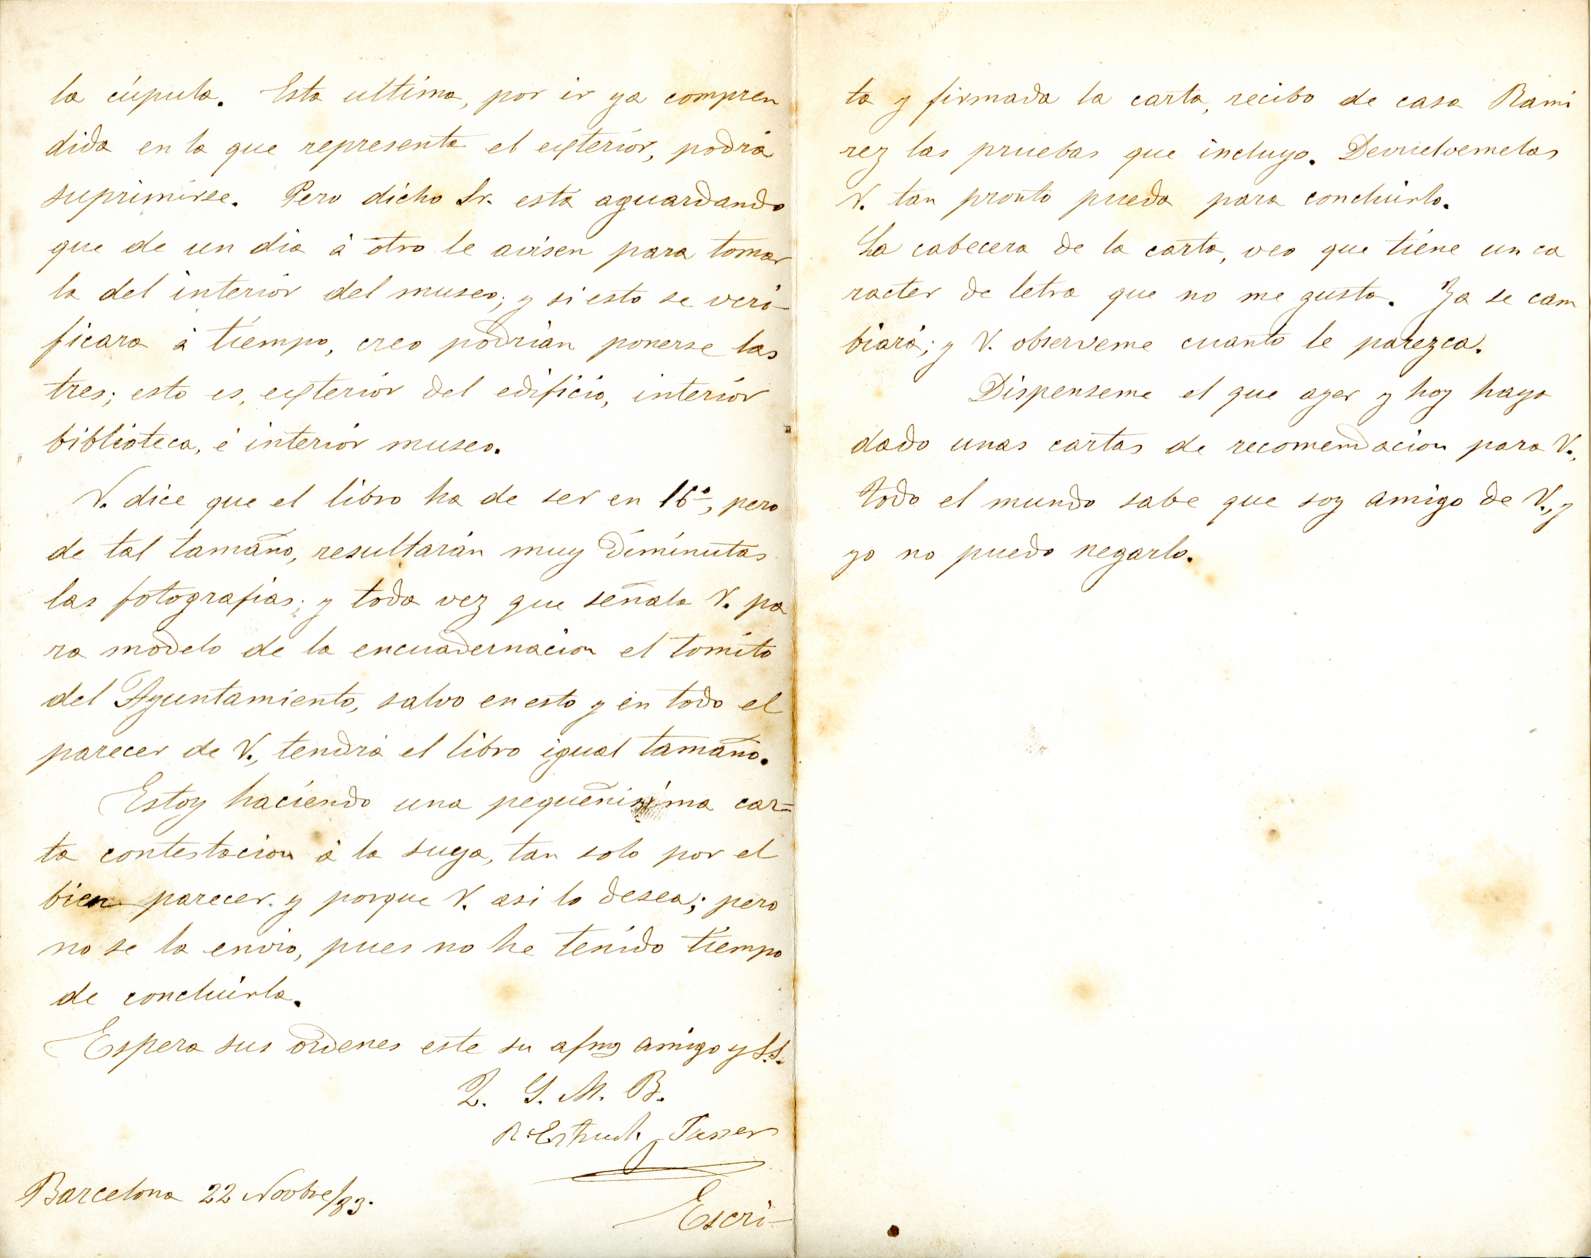 la cúpula. Esta ultima, por ir ya compren
dida en la que represente el exterior, podrá
suprimirse. Pero dicho Sr. está aguardando
que de un dia á otro le avisen para tomar
la del interior del museo; y si esto se veri-
ficara á tiempo, creo podrian ponerse las
tres; esto es, exterior del edificio, interior
biblioteca, é interior museo.
V. dice que el libro ha de ser en 16º, pero
de tal tamaño, resultarán muy diminutas
las fotografias; y toda vez que señala V. pa
ra modelo de la encuadernacion el tomito
del Ayuntamiento, salvo en esto y en todo el
parecer de V., tendrá el libro igual tamaño.
Estoy haciendo una pequeñisima car=
ta contestacion á la suya, tan solo por el
bien parecer y porque V. asi lo desea; pero
no se la envio, pues no he tenido tiempo
de concluirla.
Espera sus ordenes este su afmo amigo y S.S.
Q. S. M. B.
R. Estruch y Jusser
Barcelona 22 Novbre/83.
Escri-
ta y firmada la carta, recibo de casa Rami
rez las pruebas que incluyo. Devuelvemelas
V. tan pronto pueda para concluirlo.
La cabecera de la carta, veo que tiene un ca
racter de letra que no me gusta. Ya se cam
biará; y V. observeme cuanto le parezca.
Dispenseme el que ayer y hoy haya
dado unas cartas de recomendacion para V.,
todo el mundo sabe que soy amigo de V., y
yo no puedo negarlo.